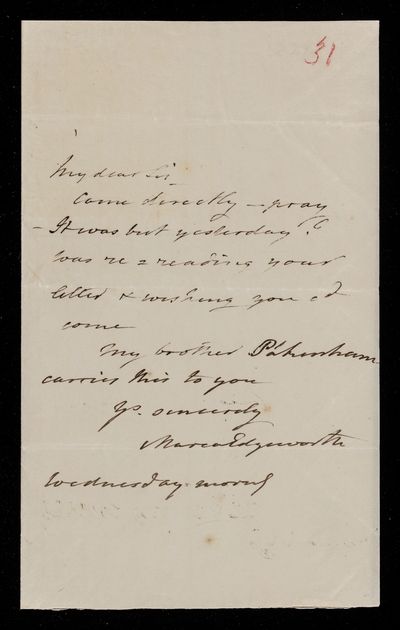 31
My dear Sir
Come directly – pray
– It was but yesterday I
was re=reading your
letter & wishing you cd
come
My brother Pakenham
carries this to you
Yrs. sincerely
Maria Edgeworth
Wednesday morng